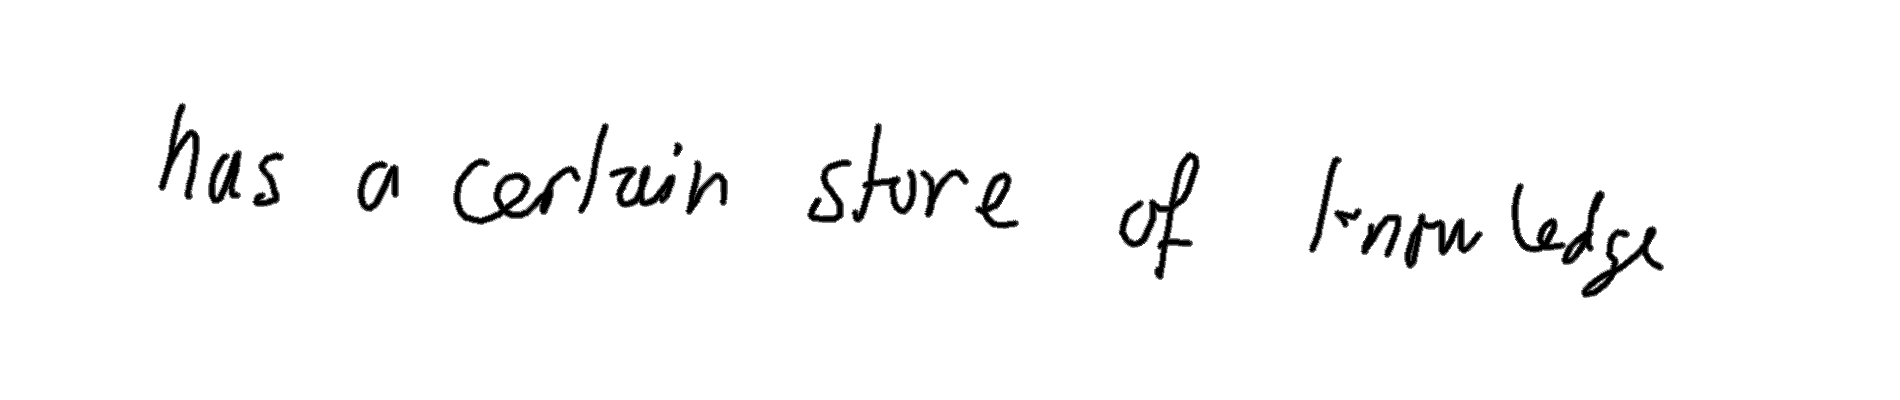 has a certain store of knowledge